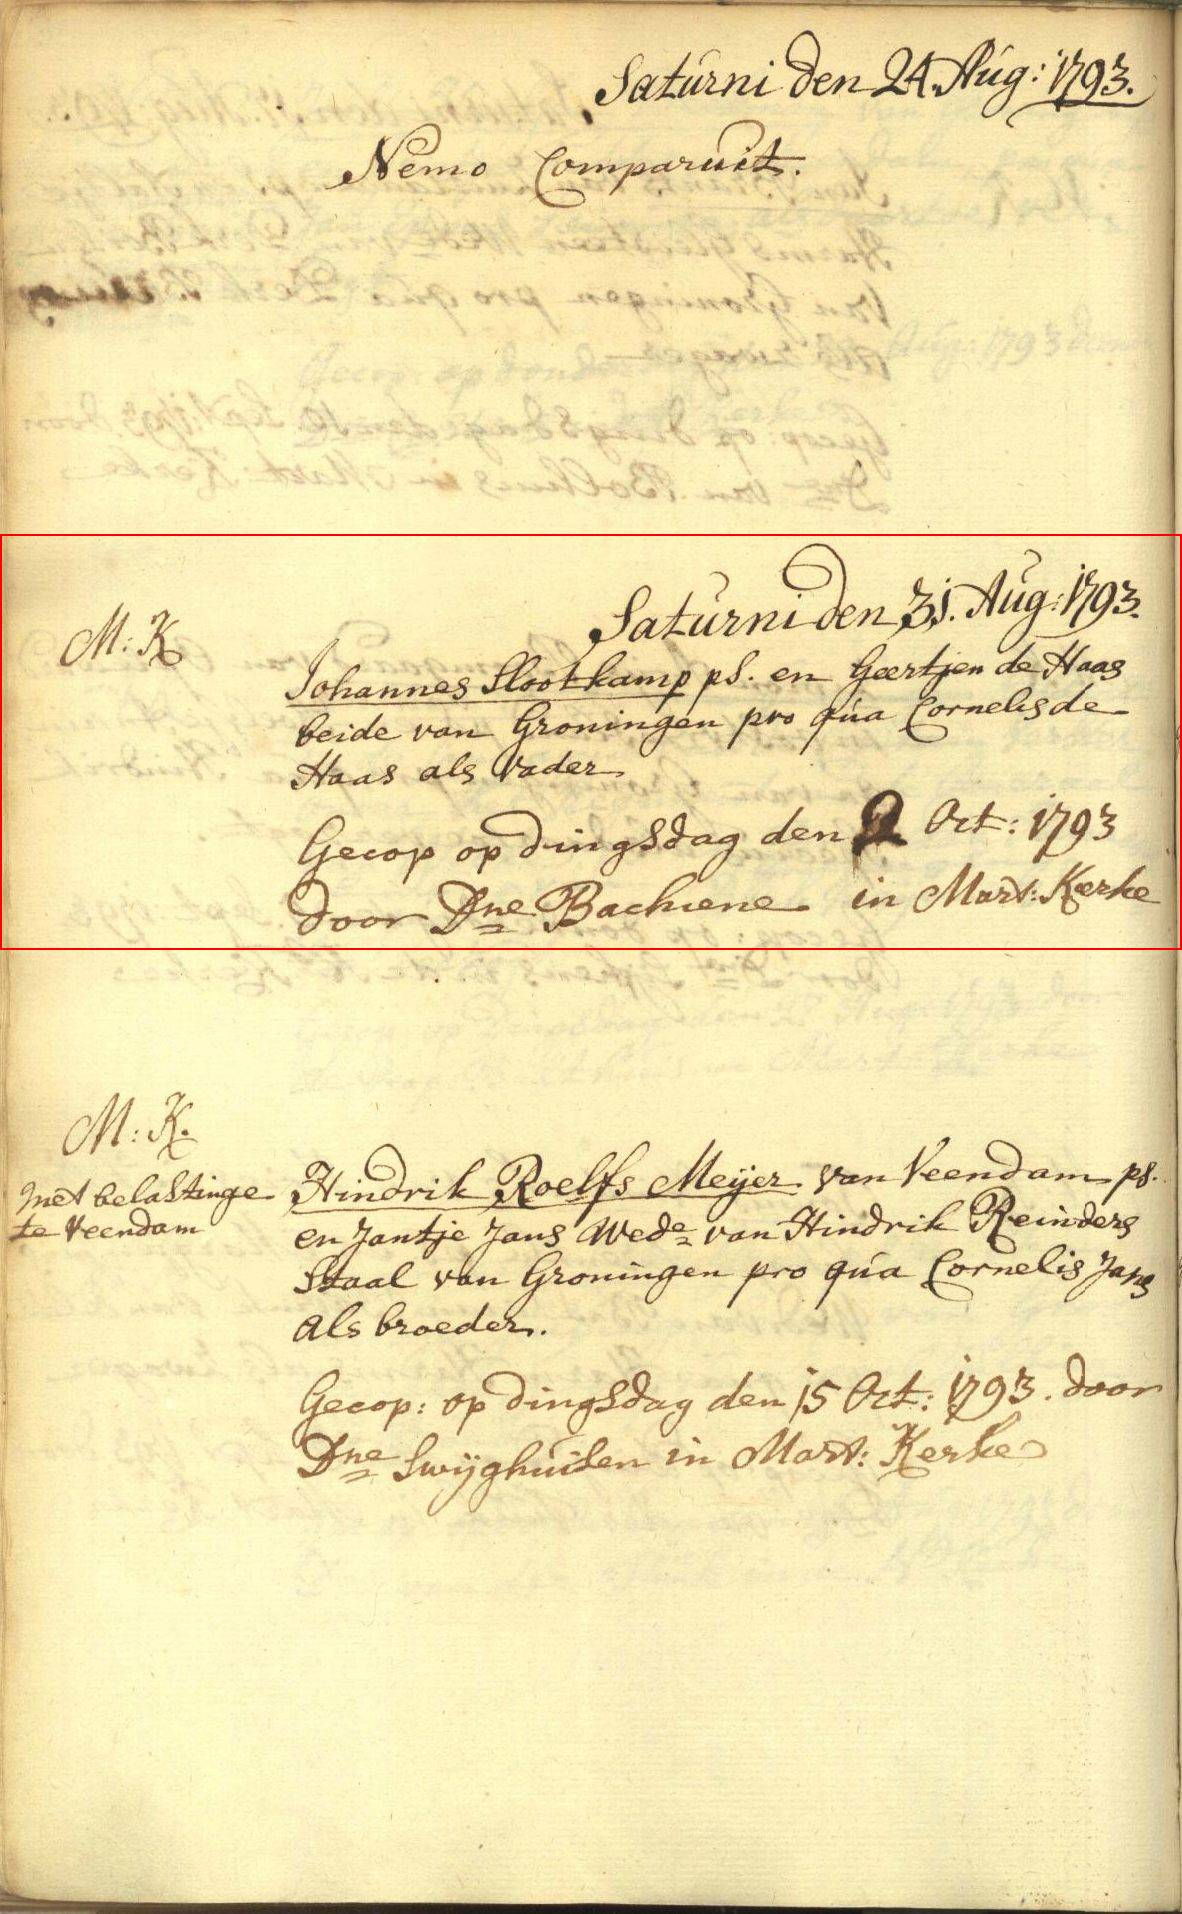 Saturni den 24. Aug: 1793.
Nemo Comparuit.
Saturni den 31. Aug: 1793.
M: K
Johannes Slootkamp ps. en Geertjen de Haas
beide van Groningen pro qua Cornelis de
Haas als vader
Gecop op dingsdag den 2 Oct: 1793
door Dne Bachiene in Mart: Kerke
M: K.
met belastinge
te Veendam
Hindrik Roelfs Meijer van Veendam ps.
en Jantje Jans Wede van Hindrik Reinders
Staal van Groningen pro qua Cornelis Jans
als broeder.
Gecop: op dingsdag den 15 Oct: 1793. door
Dne Swijghuisen in Mart: Kerke